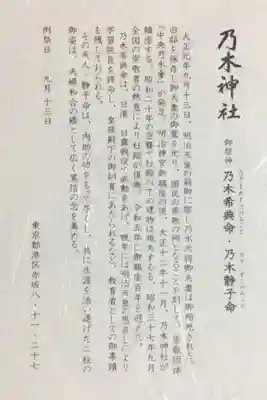 乃木神社
御祭神 乃木希典命・乃木静子命
大正元年九月十三日、明治天皇の御跡に殉じ乃木大将御夫妻は御殉死された。
旧邸を保存し御夫妻の御霊を祀り、国民の崇敬の祠となること不刻して、崇敬団体
「中央乃木會」が発足。明治神宮御鎮座の後、大正十二年十一月、乃木神社が
鎮座する。昭和二十年の空襲で社殿以下の建物は焼失するも、昭和三十七年九月
全国の崇敬者の熱意により社殿が復興。令和五年に御鎮座百年を迎えた。
乃木希典命は、日清・日露戦役で武勲をあげ、晩年には明治天皇の思召により
学習院長を拝命し、皇孫殿下の御訓育にあたられるなど、教育者としての御事蹟
を残しておられる。
その夫人・静子命は、内助の功をもって尽くし、共に生涯を添い遂げた二柱の
御姿は、夫婦和合の様として広く篤信の念を集める。
例祭日 九月十三日
東京都港区赤坂八・十一・二十七